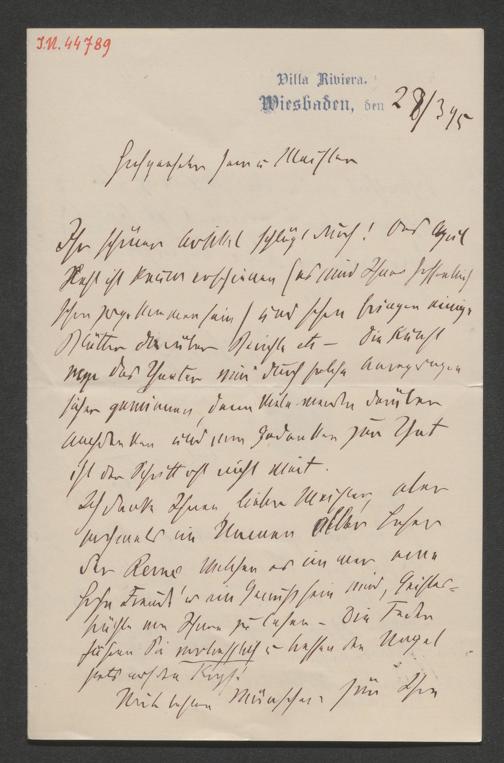 I.N. 44789
Villa Riviera.
Wiesbaden, den 28/3 95
Hochgeehrter Herr u Meister
Ihr schöner Artikel schlägt durch! Das April
Heft ist kaum erschienen (es wird Ihnen hoffentlich
schon zugekommen sein) und schon bringen einige
Blätter darüber Berichte etc – Die Kunst
das Theater wird durch solche Anregungen
sicher gewinnen, denn Viele werden darüber
nachdenken und vom Gedanken zur That
ist der Schritt oft nicht weit.
Ich danke Ihnen, lieber Meister, aber
nochmals im Namen aller Leser
der Revue welchen es immer eine
hohe Freude u ein Genuss sein wird, Geistes-
früchte von Ihnen zu lesen – Die Feder
führen Sie u treffen den Nagel
stets auf den Kopf!
Mit besten Wünschen für Ihr